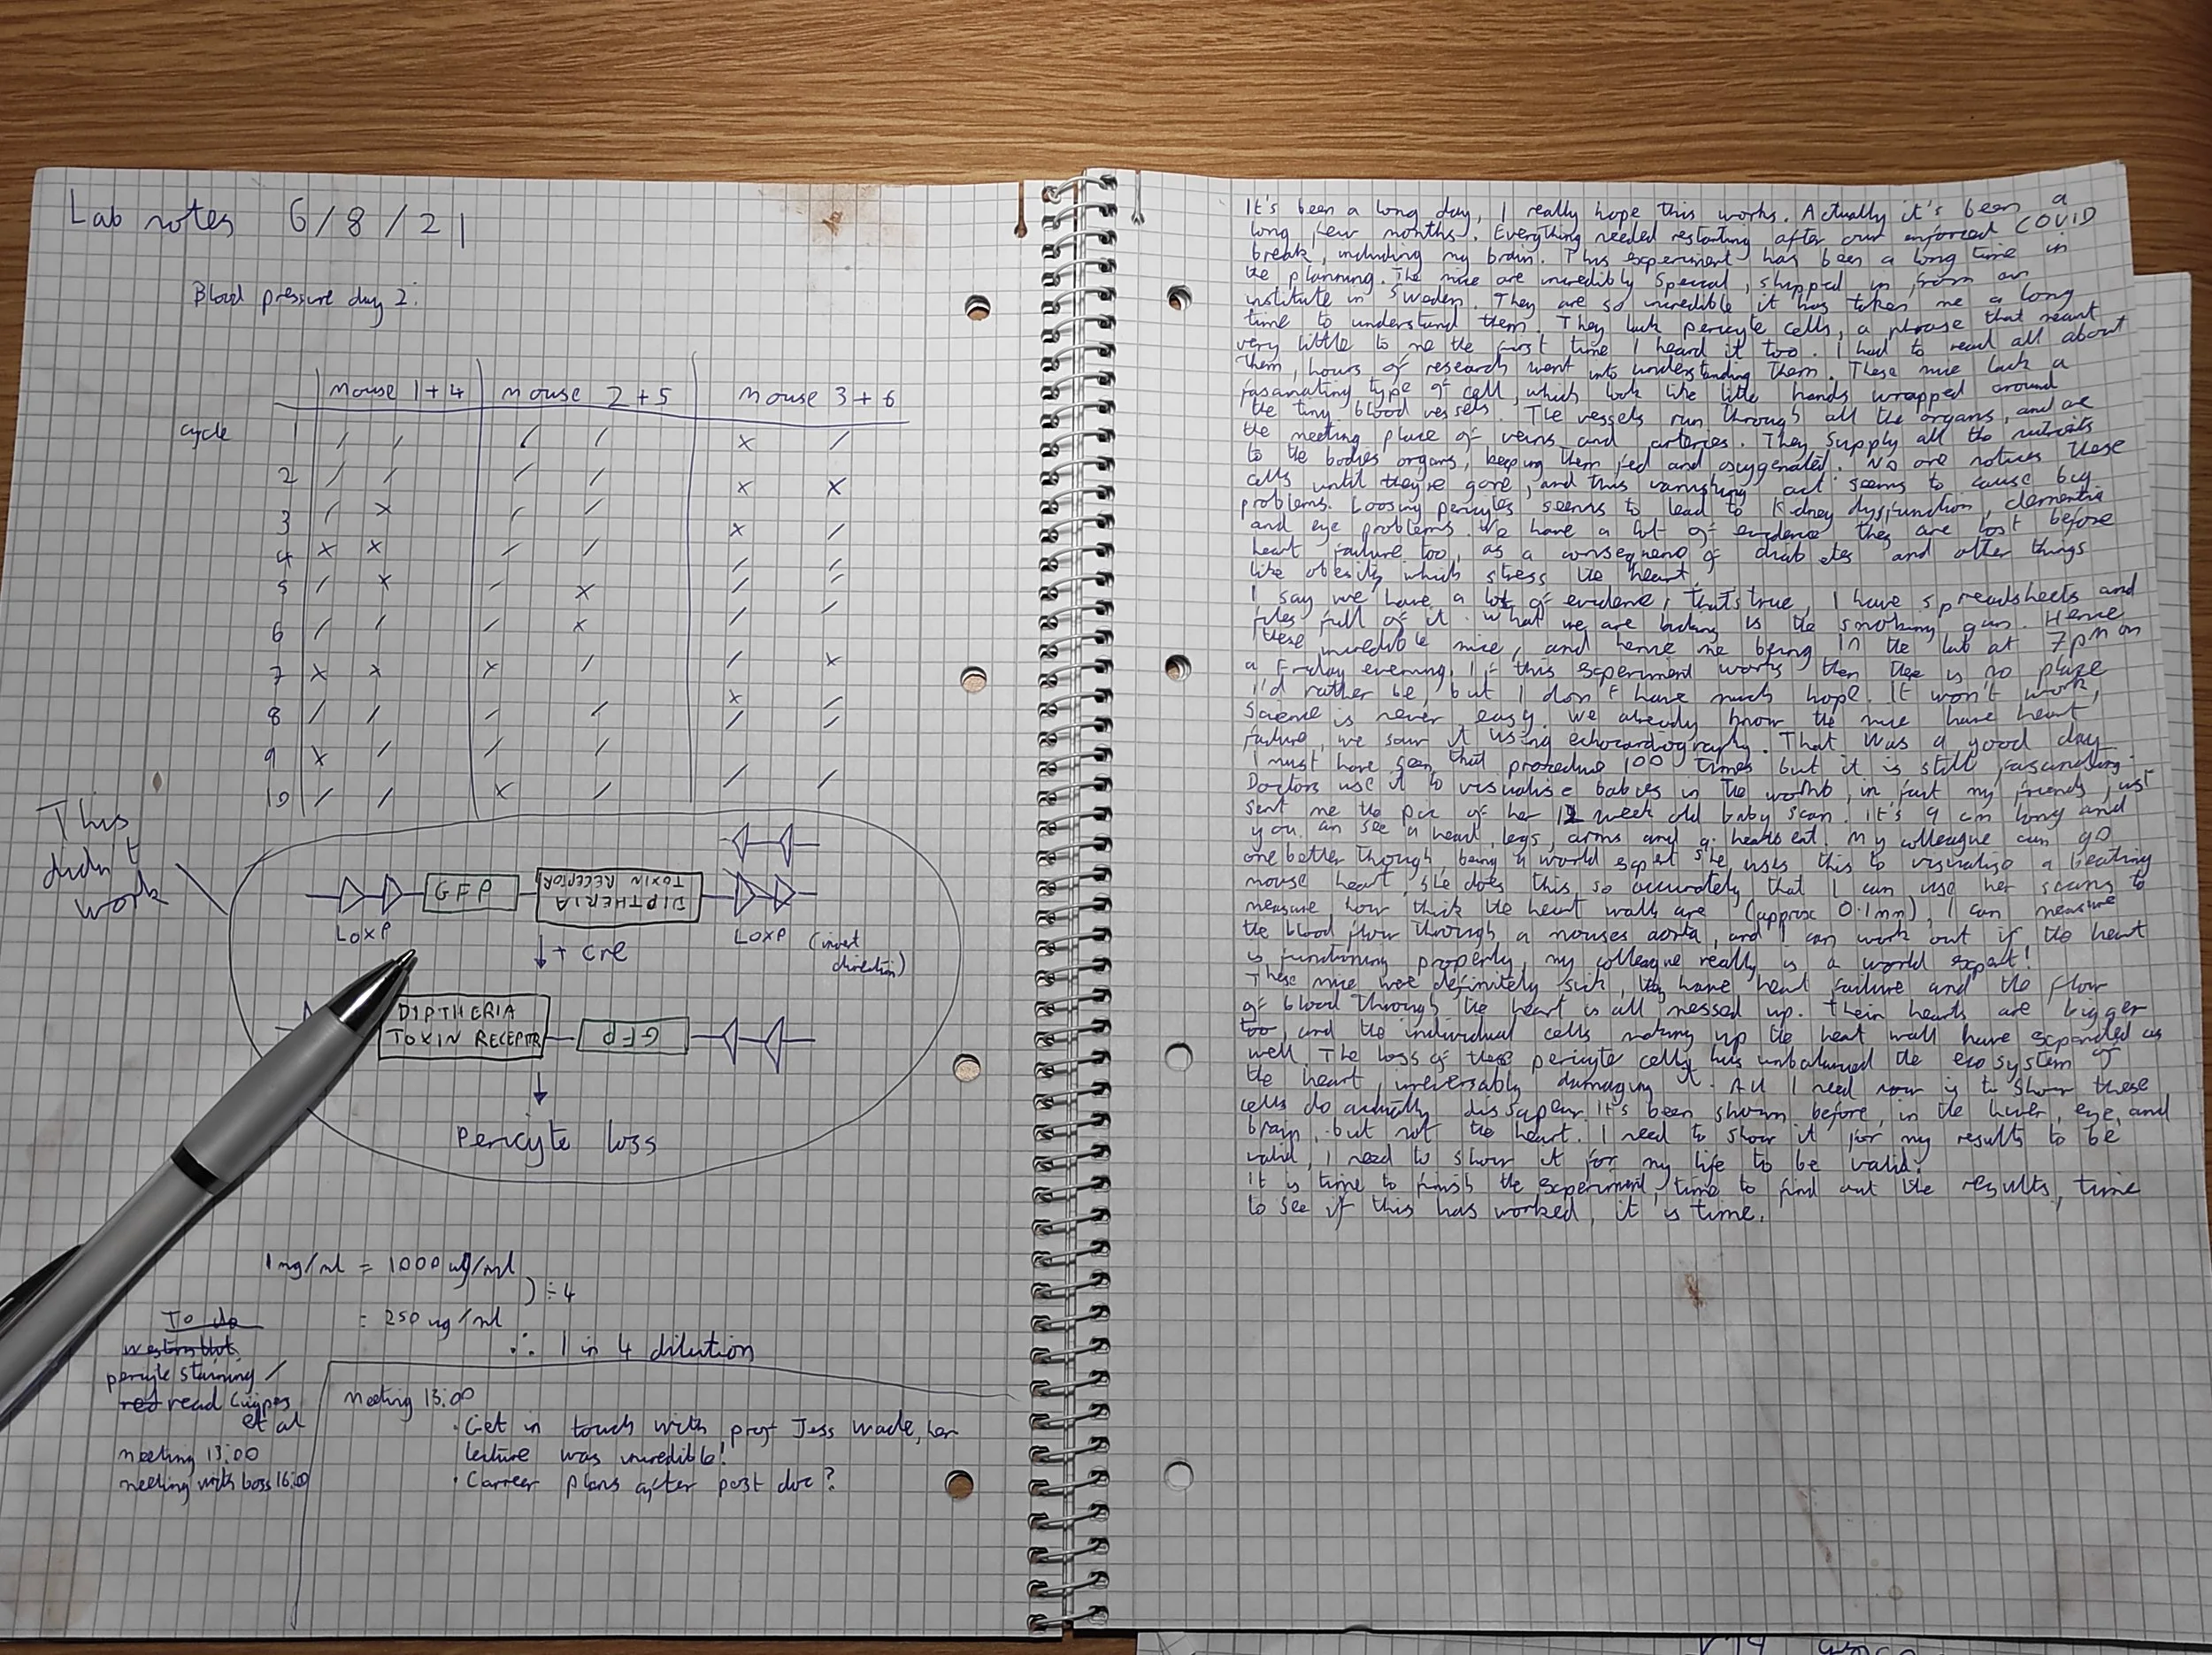 Lab notes 6/8/21
Blood pressure day 2:
mouse 1+4 mouse 2+5 mouse 3+6
cycle 1 / / / / x /
2 / / / / x x
3 / x / / x /
4 x x / / / /
5 / x / x / /
6 / / / x / /
7 x x x / / x
8 / / / / x /
9 x / / / / /
10 / / x / / /
This
didn't
work
GFP DIPTHERIA TOXIN RECEPTOR
LOXP LOXP (invert
direction)
+ cre
DIPTHERIA
TOXIN RECEPTR GFP
Pericyte loss
1 mg/ml = 1000 ug/ml
) ÷4
= 250 ug/ml
∴ 1 in 4 dilution
To do
western blot
pericyte staining /
red read Cuypes
et al
meeting 13:00
meeting with boss 16:00
meeting 13:00
· Get in touch with prof Jess Wade, her
lecture was incredible!
· Carreer plans after post doc?
It's been a long day, I really hope this works. Actually it's been a
long few months. Everything needed restarting after our enforced COVID
break, including my brain. This experiment has been a long time in
the planning. The mice are incredibly special, shipped in from an
institute in Sweden. They are so incredible it has taken me a long
time to understand them. They lack pericyte cells, a phrase that meant
very little to me the first time I heard it too. I had to read all about
them, hours of research went into understanding them. These mice lack a
fasanating type of cell, which look like little hands wrapped around
the tiny blood vessels. The vessels run through all the organs, and are
the meeting place of veins and arteries. They supply all the nutrients
to the bodies organs, keeping them fed and oxygenated. No one notices these
cells until they're gone, and this vanishing act seems to cause big
problems. Loosing pericytes seems to lead to kidney dysfunction, dementia
and eye problems. We have a lot of evidence they are lost before
heart failure too, as a consequence of diabetes and other things
like obesity which stress the heart.
I say we have a lot of evidence, that's true, I have spreadsheets and
files full of it. What we are lacking is the smoking gun. Hence
these incredible mice, and hence me being in the lab at 7pm on
a Friday evening. If this experiment works then there is no place
I'd rather be, but I don't have much hope. It won't work,
Science is never easy. We already know the mice have heart
failure, we saw it using echocardiography. That was a good day
I must have seen that procedure 100 times but it is still fascinating.
Doctors use it to visualise babies in the womb, in fact my friends just
sent me the pic of her 12 week old baby scan. It's 9 cm long and
you can see a heart, legs, arms and a heartbeat. My colleague can go
one better though, being a world expert she uses this to visualise a beating
mouse heart, she does this so accurately that I can use her scans to
measure how thick the heart walls are (approx 0.1mm), I can measure
the blood flow through a mouses aorta, and I can work out if the heart
is functioning properly, my colleague really is a world expert!
These mice were definitely sick, they have heart failure and the flow
of blood through the heart is all messed up. Their hearts are bigger
too, and the individual cells making up the heart wall have expanded as
well. The loss of these pericyte cells has unbalanced the ecosystem of
the heart, irreversably damaging it. All I need now is to show these
cells do actually dissapear. It's been shown before, in the liver, eye, and
brain, but not the heart. I need to show it for my results to be
valid, I need to show it for my life to be valid.
It is time to finish the experiment, time to find out the results, time
to see if this has worked, it is time.